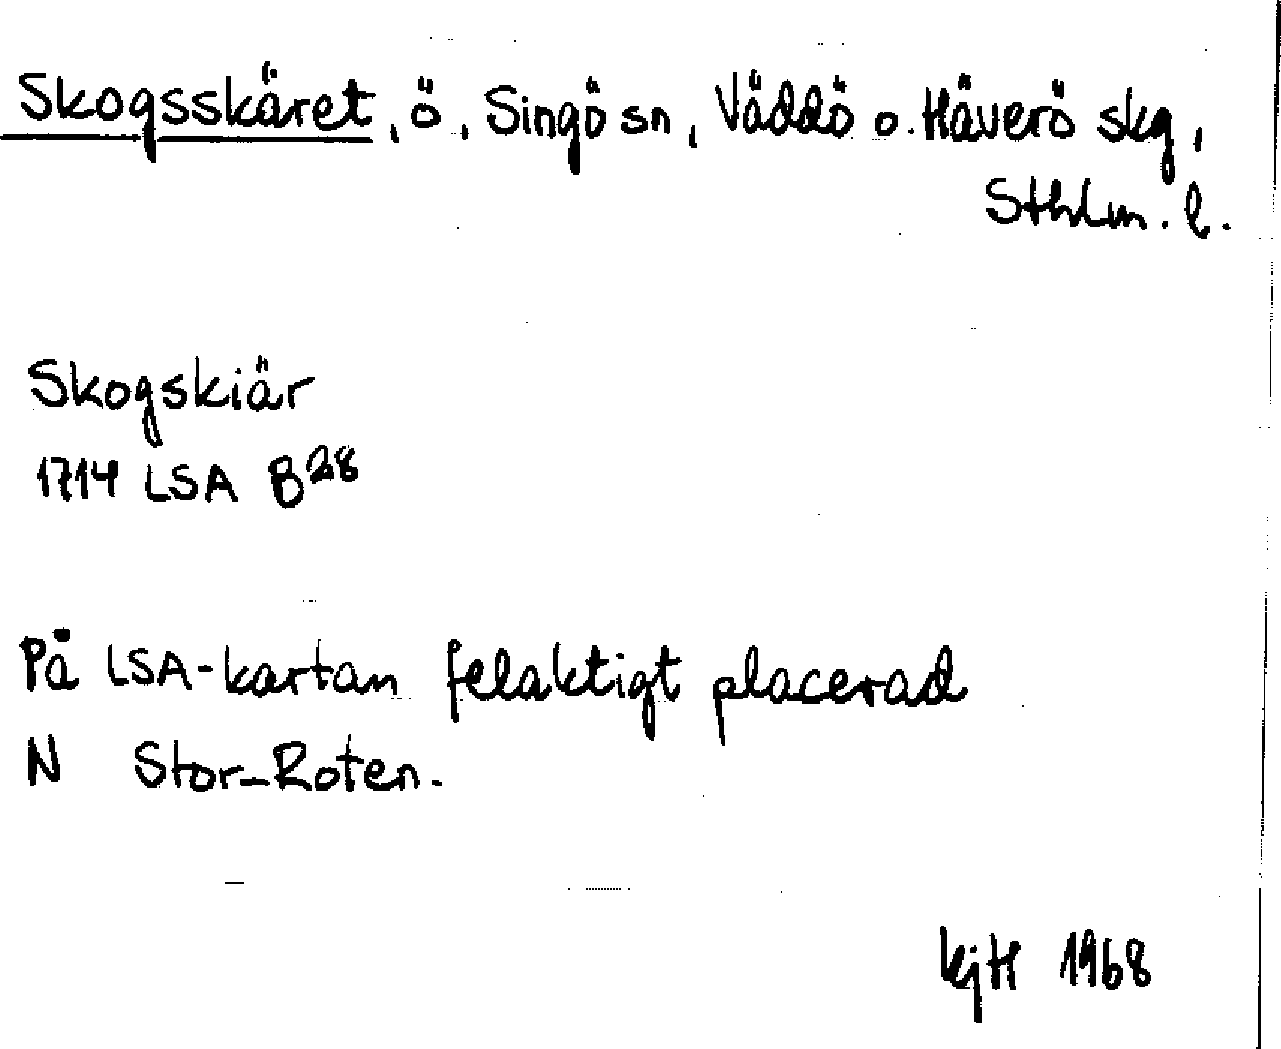 Skogsskäret, ö, Singö sn, Väddö o. Häverö skg,
Sthlm. l.
Skogskiär
1714 LSA B28
På LSA-kartan felaktigt placerad
N Stor-Roten.
KjH 1968